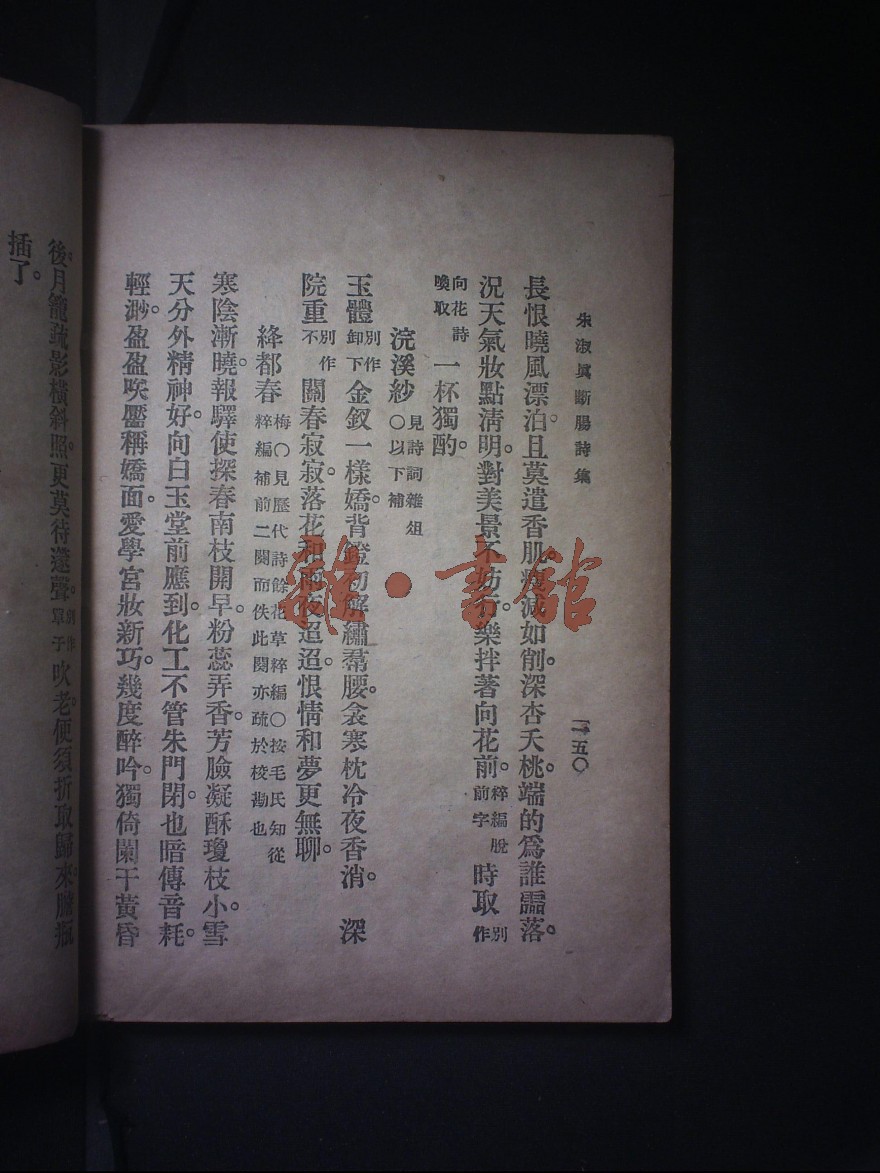 朱淑眞斷腸詩集
一五〇
長恨曉風漂泊。且莫遣香肌。瘦減如削。深杏夭桃。端的爲誰零落。
況天氣妝點淸明。對美景不妨行。樂拌著向花前。粹編脫前字時取別作
向花詩喚取一杯獨酌。
浣溪紗見詩詞雜俎〇以下補
玉體別作卸下金釵一樣嬌。背鐙初解繡羣腰。衾寒枕冷夜香消。深
院重別作不關春寂寂。落花和雨夜迢迢。恨情和夢更無聊。
絳都春梅〇見歷代詩餘花草粹編〇按毛氏知從粹編補前二闋而佚此闋亦疏於校勘也
寒陰漸曉。報驛使探春南枝開早。粉蕊弄香。芳臉凝酥瓊枝小。雪
天分外精神好。向白玉堂前應到。化工不管朱門閉。也暗傳音耗。
輕渺。盈盈笑靨。稱嬌面。愛學宮妝新巧。幾度醉吟。獨倚闌干黃昏
後。月籠疏影橫斜照。更莫待遠聲。別作單于吹老。便須折取歸來。膽瓶
插了。
雜·書館